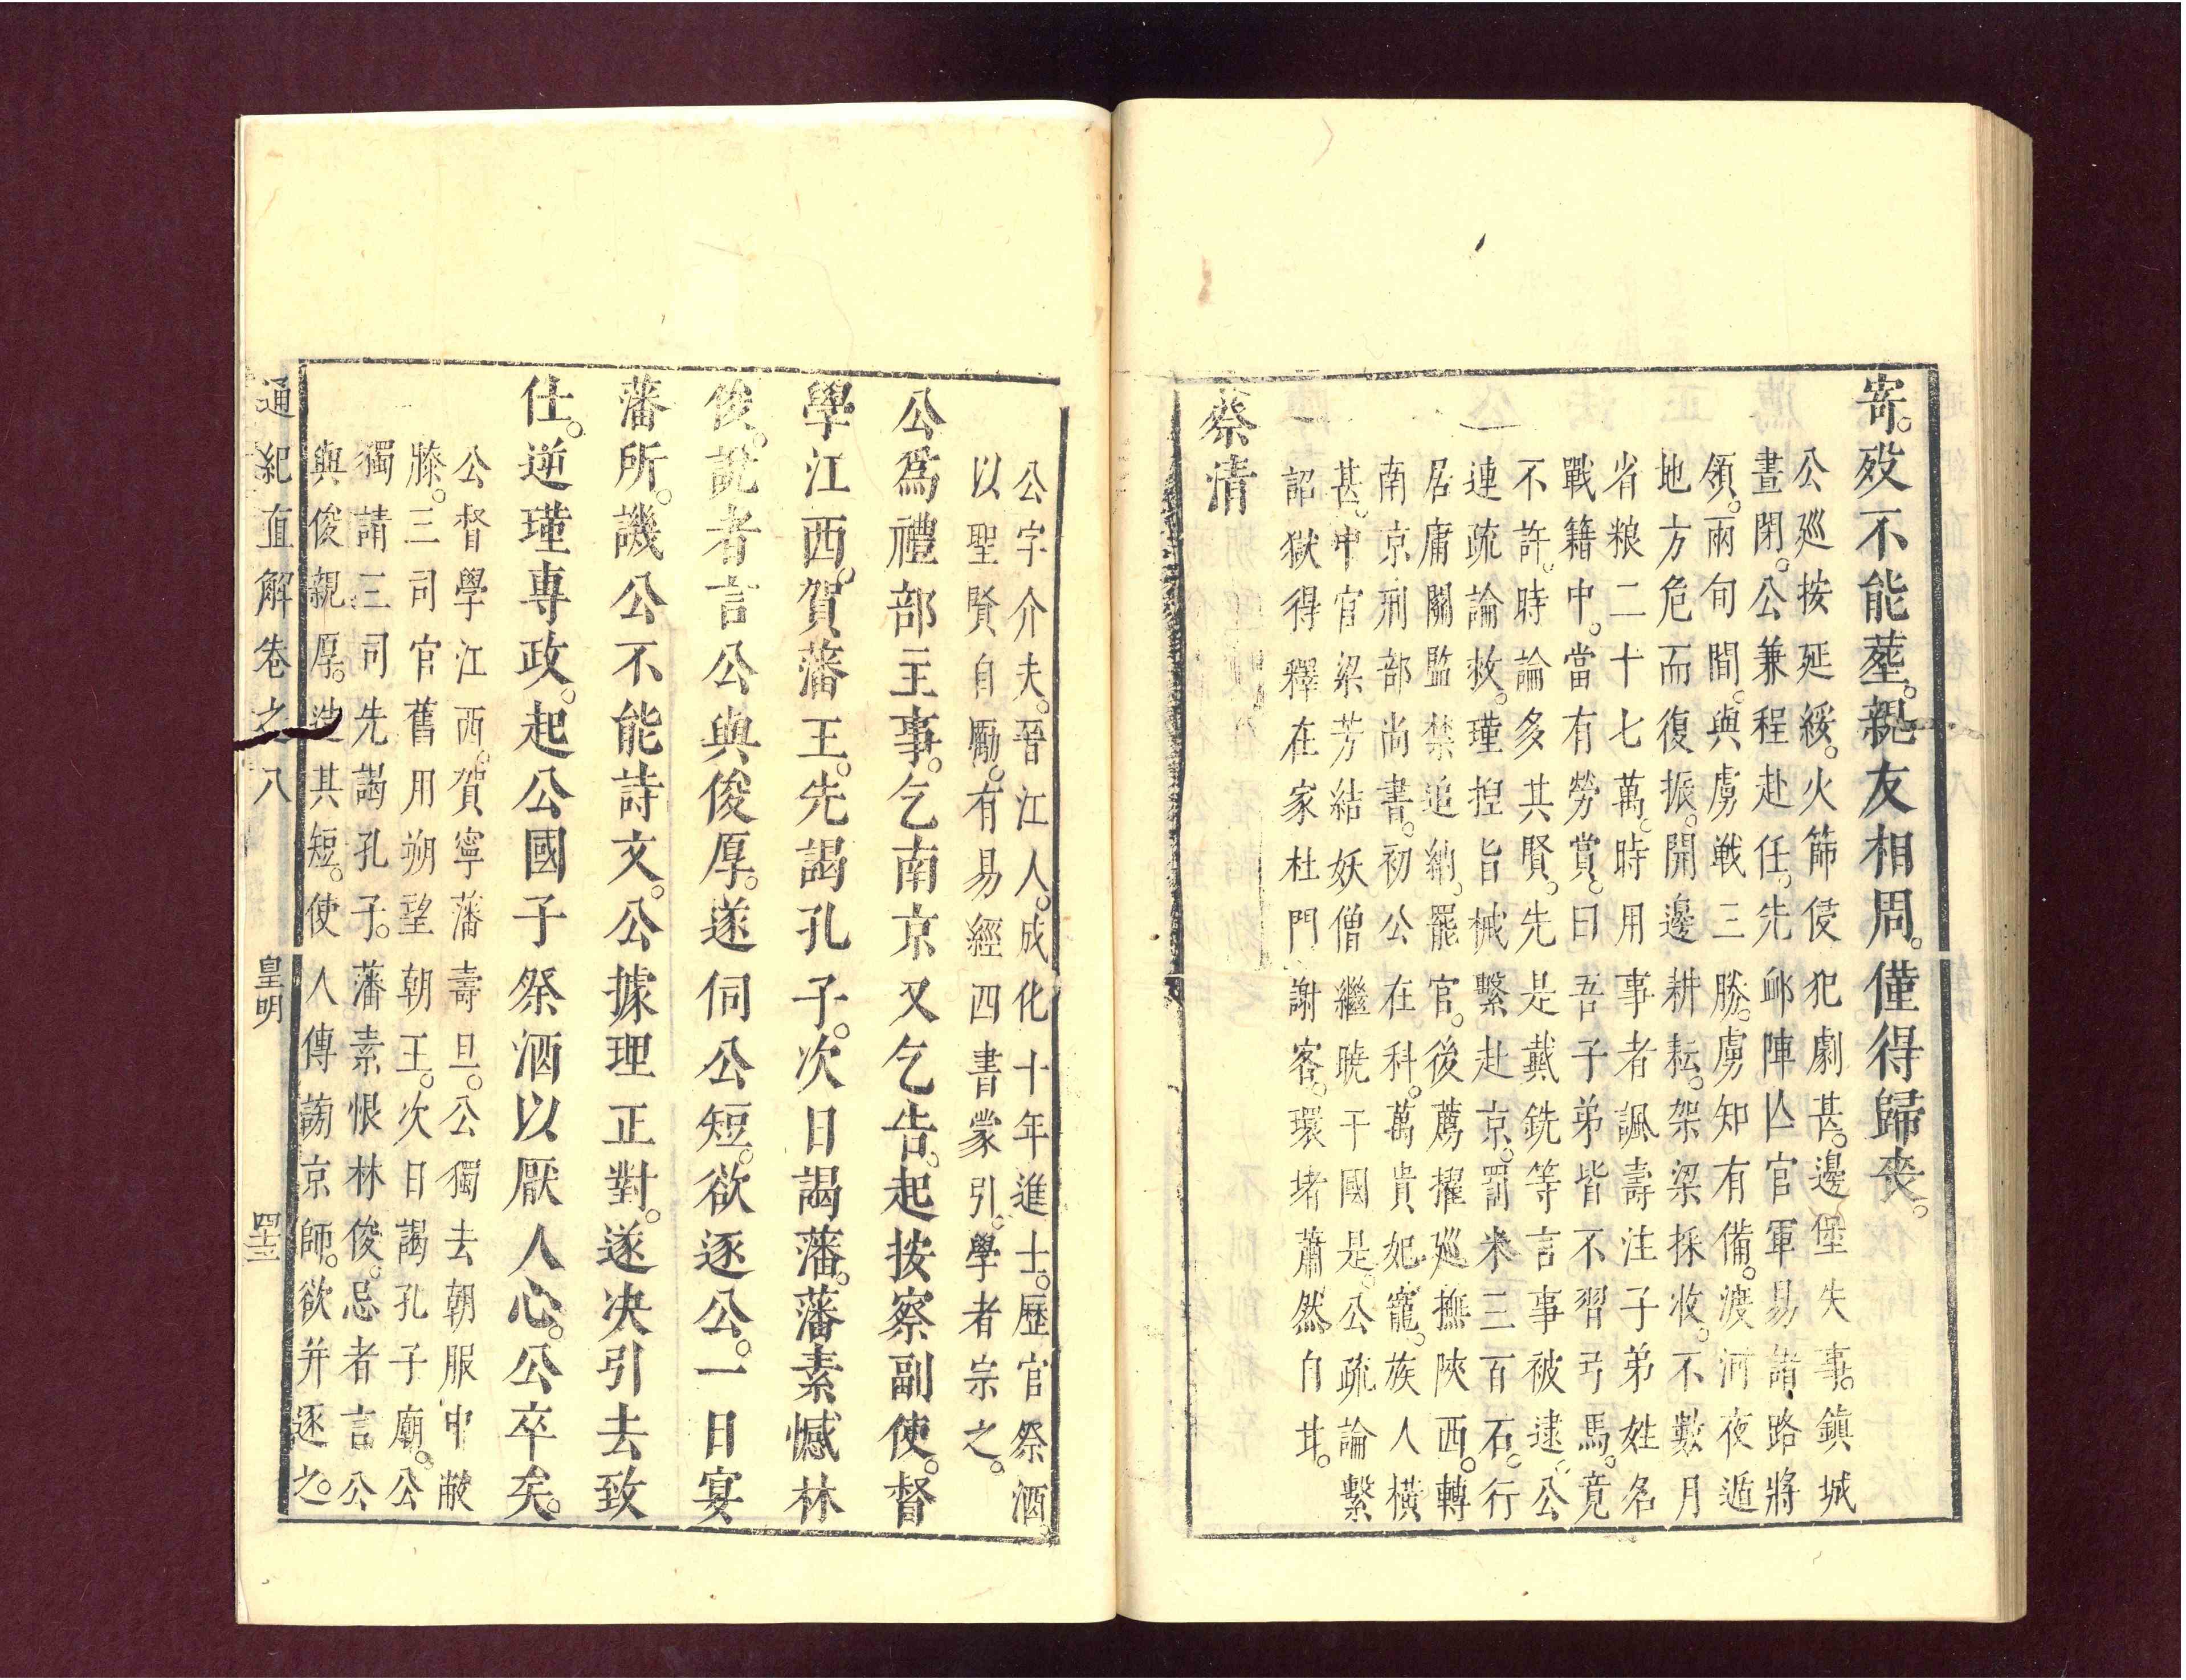 寄。歿不能塟。親友相周。僅得歸喪。
公廵按延綏。火篩侵犯劇甚。邊堡失事。鎮城
晝閉。公兼程赴任。先邺陣亾官軍。易諸路將
領。兩旬間。與虜戦三勝。虜知有備。渡河夜遁
地方危而復振。開邊耕耘。架梁採收。不數月
省粮二十七萬。時用事者諷壽注子弟姓名
戰籍中。當有勞賞。曰吾子弟皆不習弓馬。竟
不許。時論多其賢。先是戴銑等言事被逮。公
連疏論救。瑾揑旨械繫赴京。罰米三百石。行
居庸關監禁追納。罷官。後薦擢廵撫陜西。轉
南京刑部尚書。初公在科。萬貴妃寵。族人橫
甚。中官梁芳結妖僧繼曉干國是。公疏論繫
詔獄得釋在家杜門謝客。環堵蕭然自甘。
蔡清
公字介夫。晉江人。成化十年進士。歷官祭酒。
以聖賢自勵。有易經四書蒙引。學者宗之。
公爲禮部主事。乞南京又乞告。起按察副使。督
學江西。賀藩王。先謁孔子。次日謁藩。藩素憾林
俊。說者言公與俊厚。遂伺公短。欲逐公。一日宴
藩所。譏公不能詩文。公據理正對。遂决引去致
仕。逆瑾專政。起公國子祭酒以厭人心。公卒矣。
公督學江西。賀寧藩壽旦。公獨去朝服中蔽
膝。三司官舊用朔望朝王。次日謁孔子廟。公
獨請三司先謁孔子。藩素恨林俊。忌者言公
與俊親厚。其短。使人傳謗京師。欲并逐之。
通紀直解卷之八 皇明 四十三